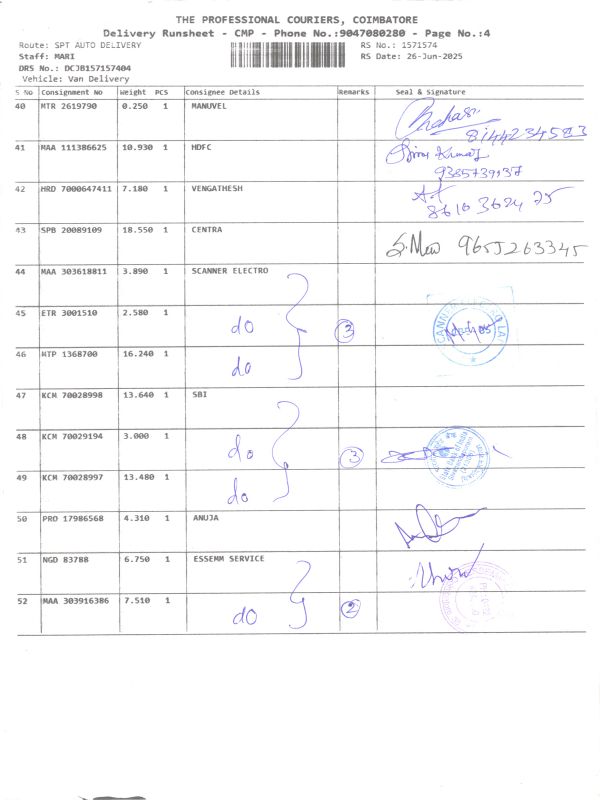 THE PROFESSIONAL COURIERS, COIMBATORE
Delivery Runsheet - CMP - Phone No.:9047080280 - Page No.:4
Route: SPT AUTO DELIVERY RS No.: 1571574
Staff: MARI RS Date: 26-Jun-2025
DRS No.: DCJB157157404
Vehicle: Van Delivery
S No Consignment No Weight PCS Consignee Details Remarks Seal & Signature
40 MTR 2619790 0.250 1 MANUVEL
8144234583
41 MAA 111386625 10.930 1 HDFC
9385739937
42 HRD 7000647411 7.180 1 VENGATHESH
8610 3624 25
43 SPB 20089109 18.550 1 CENTRA 9655263345
44 MAA 303618811 3.890 1 SCANNER ELECTRO
45 ETR 3001510 2.580 1 do 3
46 MTP 1368700 16.240 1 do
47 KCM 70028998 13.640 1 SBI
48 KCM 70029194 3.000 1 do 3
49 KCM 70028997 13.480 1 do
50 PRO 17986568 4.310 1 ANUJA
51 NGD 83788 6.750 1 ESSEMM SERVICE
52 MAA 303916386 7.510 1 do 2